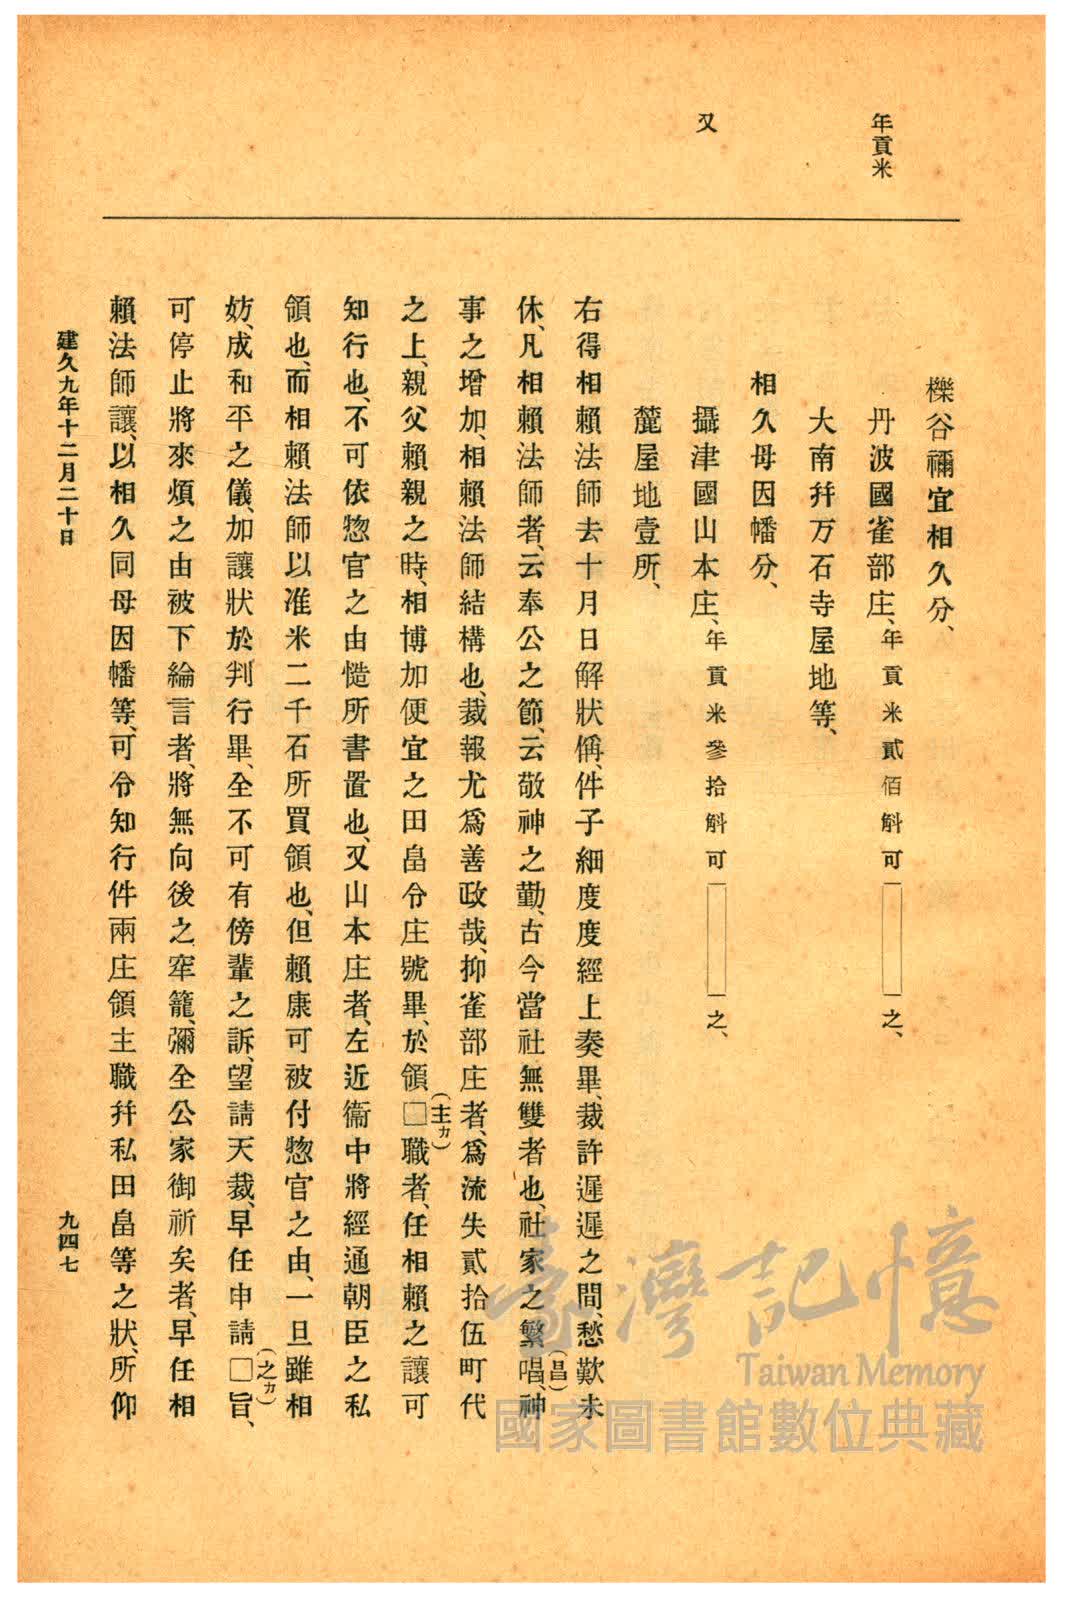 年貢米
又
櫟谷禰宜相久分、
丹波國雀部庄、年貢米貳佰斛可□之、
大南幷万石寺屋地等、
相久母因幡分、
攝津國山本庄、年貢米參拾斛可□之、
麓屋地壹所、
右得相賴法師去十月日解狀偁、件子細度度經上奏畢、裁許遲遲之間、愁歎未
休、凡相賴法師者、云奉公之節、云敬神之勤、古今當社無雙者也、社家之繁唱(昌)、神
事之增加、相賴法師結構也、裁報尤爲善政哉、抑雀部庄者、爲流失貳拾伍町代
之上、親父賴親之時、相博加便宜之田畠令庄號畢、於領□(主カ)職者、任相賴之讓可
知行也、不可依惣官之由慥所書置也、又山本庄者、左近衞中將經通朝臣之私
領也、而相賴法師以准米二千石所買領也、但賴康可被付惣官之由、一旦雖相
妨、成和平之儀、加讓狀於判行畢、全不可有傍輩之訴、望請天裁、早任申請□(之カ)旨、
可停止將來煩之由被下綸言者、將無向後之窂籠、彌全公家御祈矣者、早任相
賴法師讓、以相久同母因幡等、可令知行件兩庄領主職幷私田畠等之狀、所仰
建久九年十二月二十日
九四七
臺灣記憶
Taiwan Memory
國家圖書館數位典藏